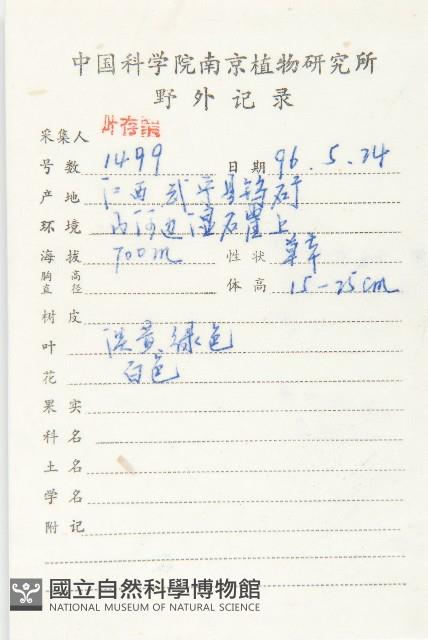 中国科学院南京植物研究所
野外记录
采集人 叶存粟
号数 1499 日期 96.5.24
产地 江西 武宁县钨矿
环境 内河边湿石崖上
海拔 700m 性状 草本
胸高直径 体高 15-25cm
树皮
叶 淡黄绿色
花 白色
果实
科名
土名
学名
附记
國立自然科學博物館
NATIONAL MUSEUM OF NATURAL SCIENCE